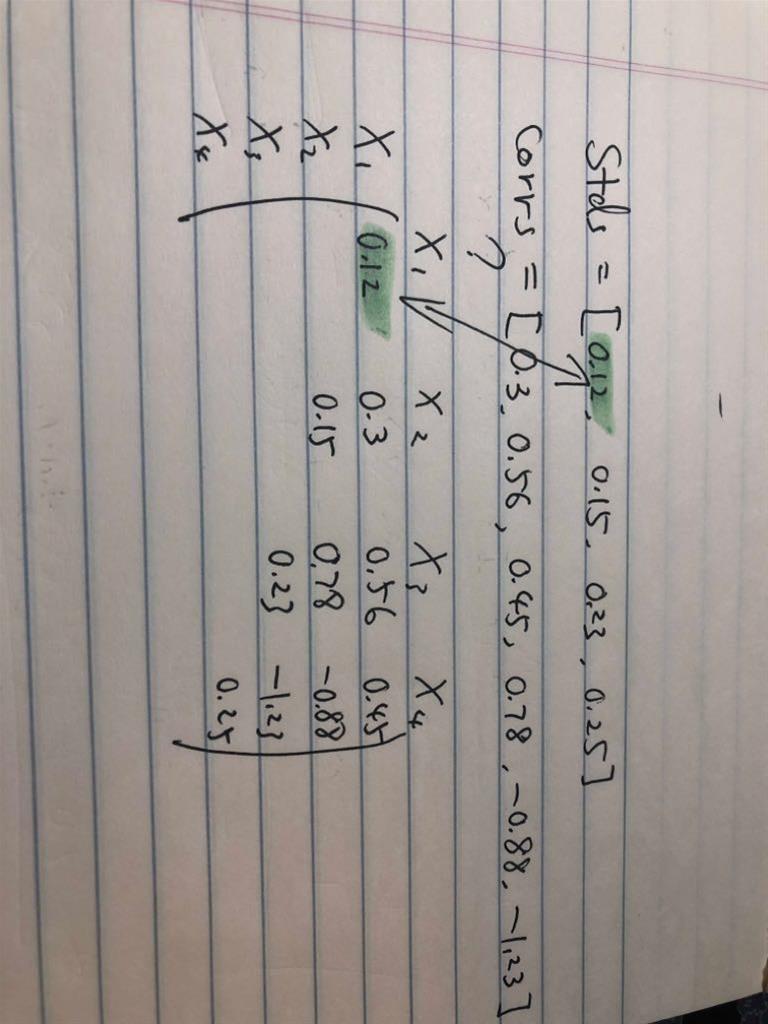 Stds = [0.12, 0.15, 0.23, 0.25]
Corrs = [0.3, 0.56, 0.45, 0.78, -0.88, -1.23]
?
X1 X2 X3 X4
X1 0.12 0.3 0.56 0.45
X2 0.15 0.78 -0.88
X3 0.23 -1.23
X4 0.25